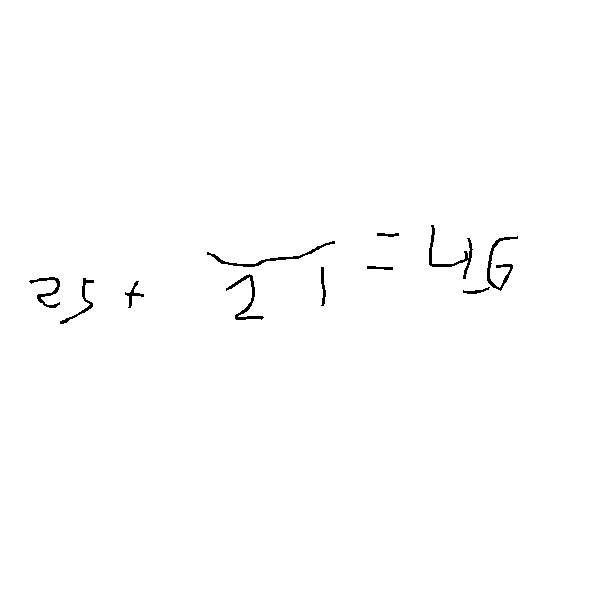 25 + 21 = 46